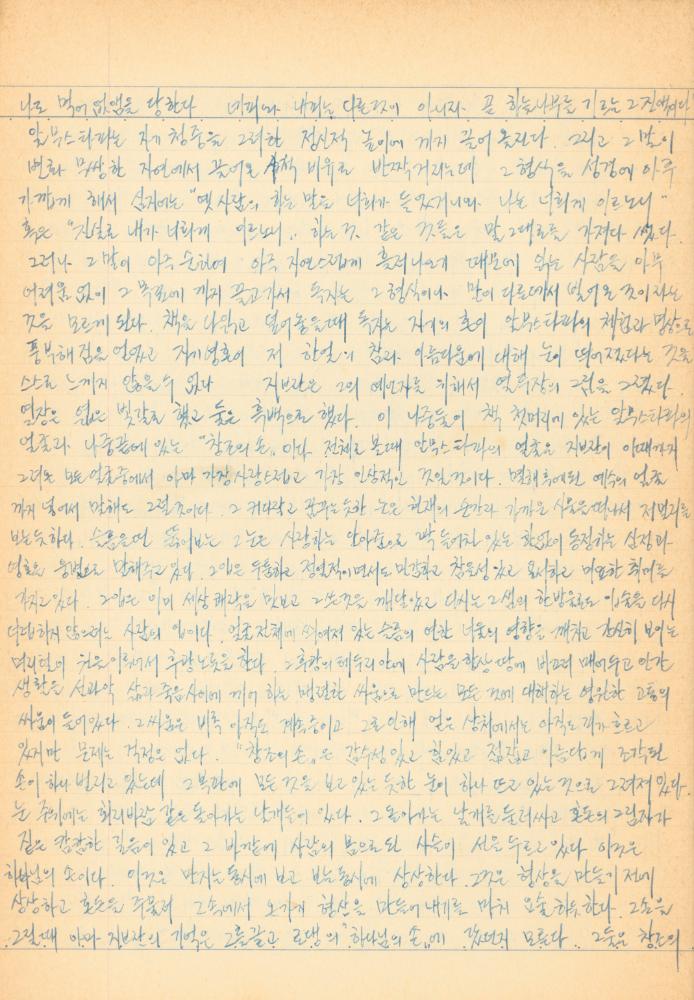 나로 먹어 없앰을 당한다 네피와 내피는 다른것이 아니자. 곧 하늘나무를 기르는 그 진액이다
알무스타파는 자기 청중을 그러한 정신적 높이에 까지 끌어 올린다. 그리고 그 말이
변화 무쌍한 자연에서 끌어온 비유로 반짝거리는데 그 형식을 성경에 아주
가깝게 해서 심지어는 "옛 사람의 하는 말을 너희가 들었거니와 나는 너희게 이르노니"
혹은 "진실로 내가 너희게 이르노니" 하는 것 같은 것들은 말 그대로를 가져다 썼다.
그러나 그 말이 아주 순하여 아주 자연스럽게 흘러나오기 때문에 읽는 사람을 아무
어려움 없이 그 목표에 까지 끌고가서 독자는 그 형식이나 말이 다른데서 빌어온 것이라는
것을 모르게 된다. 책을 다 읽고 덮어놓을 때 독자는 자기의 혼이 알무스타파의 체험과 명상으로
풍부해짐을 얻었고 자기 영혼이 저 한얼의 참과 아름다움에 대해 눈이 띄어졌다는 것을
스스로 느끼지 않을 수 없다 지브란은 그의 예언자를 위해서 열두장의 그림을 그렸다.
열장은 엷은 빛갈로 했고 둘은 흑백으로 했다. 이 나중 둘이 책 첫머리에 있는 알무스타파의
얼굴과 나중 끝에 있는 "창조의 손"이다. 전체로 볼 때 알무스타파의 얼굴은 지브란이 이때까지
그려온 모든 얼굴 중에서 아마 가장 사랑스럽고 가장 인상적인 것일 것이다. 몇해 후에 된 예수의 얼굴
까지 넣어서 말해도 그럴 것이다. 그 커다랗고 꿈꾸는 듯한 눈은 현재의 순간과 가까운 사물을 떠나서 저 멀리를
보는 듯하다. 슬픔으로 뚫어보는 그 눈은 사랑하는 안으로 꽉 들어차 있는 한없이 동정하는 심정과
영혼을 웅변으로 말해주고 있다. 그 입은 두툼하고 정열적이면서도 민감하고 참을성 있고 묘사하고 미묘한 취미를
가지고 있다. 그 입은 이미 세상 쾌락을 맛보고 그 쓴 것을 깨달았고 다시는 그 샘의 한 방울로도 입술을 다시
더럽히지 않으려는 사람의 입이다. 얼굴 전체에 씌여져 있는 슬픔의 연한 너울의 영향을 깨치고 간신히 보이는
머리털이 원을 이루어서 후광노릇을 한다. 그 후광의 테두리 안에 사람을 항상 땅에 비끄러 매어두고 인간
생활을 선과 악 삶과 죽음 사이에 끼어 하는 맹렬한 싸움으로 만드는 모든 것에 대해 하는 영원한 고통의
싸움이 들어있다. 그 싸움은 비록 아직도 계속중이고 그로 인해 얻은 상처에서는 아직도 피가 흐르고
있지만 문제는 걱정은 없다. "창조의 손"은 감수성 있고 힘있고 점잖고 아름답게 조각된
손이 하나 벌리고 있는데 그 복판에 모든 것을 보고 있는 듯한 눈이 하나 뜨고 있는 것으로 그려져 있다.
눈 주위에는 회리바람 같은 돌아가는 날개들이 있다. 그 돌아가는 날개를 둘러싸고 혼돈의 그림자가
깊은 캄캄한 길음이 있고 그 바깥에 사람의 몸으로 된 사슬이 선을 두르고 있다 이것은
하나님의 손이다. 이것은 만지는 동시에 보고 보는 동시에 상상한다. 그것은 형상을 만들기 전에
상상하고 혼돈을 주물러 그 속에서 온가지 형상을 만들어 내기를 마치 요술하듯 한다. 그 손을
그릴 때 아마 지브란의 기억은 그를 끌고 로댕의 "하나님의 손"에 갔던지 모른다. 그 둘은 창조의